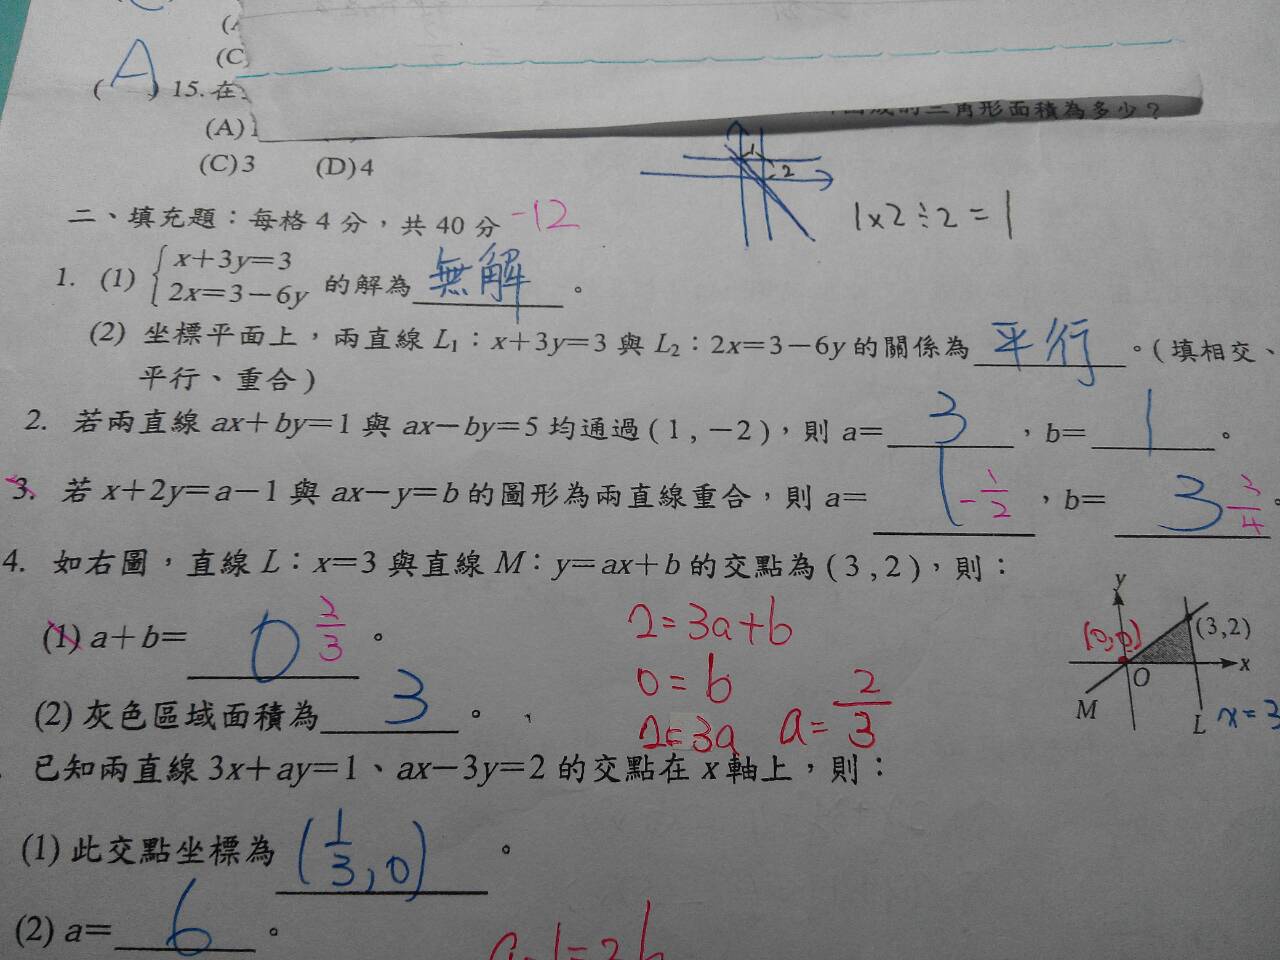 (A
(C
(A) 15. 在
三角形面積為多少？
(A) 1
(C) 3 (D) 4
1
2
1×2÷2=1
二、填充題：每格 4 分，共 40 分 -12
1. (1) { x+3y=3
2x=3-6y 的解為 無解 。
(2) 坐標平面上，兩直線 L₁：x+3y=3 與 L₂：2x=3-6y 的關係為 平行 。( 填相交、
平行、重合 )
2. 若兩直線 ax+by=1 與 ax-by=5 均通過 ( 1 , -2 )，則 a= 3 ，b= 1 。
3. 若 x+2y=a-1 與 ax-y=b 的圖形為兩直線重合，則 a= 1 -1/2 ，b= 3 3/4 。
4. 如右圖，直線 L：x=3 與直線 M：y=ax+b 的交點為 ( 3 , 2 )，則：
(1) a+b= 0 2/3 。
2=3a+b
0=b
2=3a a=2/3
y
(0,0)
(3,2)
x
O
M
L x=3
(2) 灰色區域面積為 3 。
已知兩直線 3x+ay=1、ax-3y=2 的交點在 x 軸上，則：
(1) 此交點坐標為 (1/3,0) 。
(2) a= 6 。